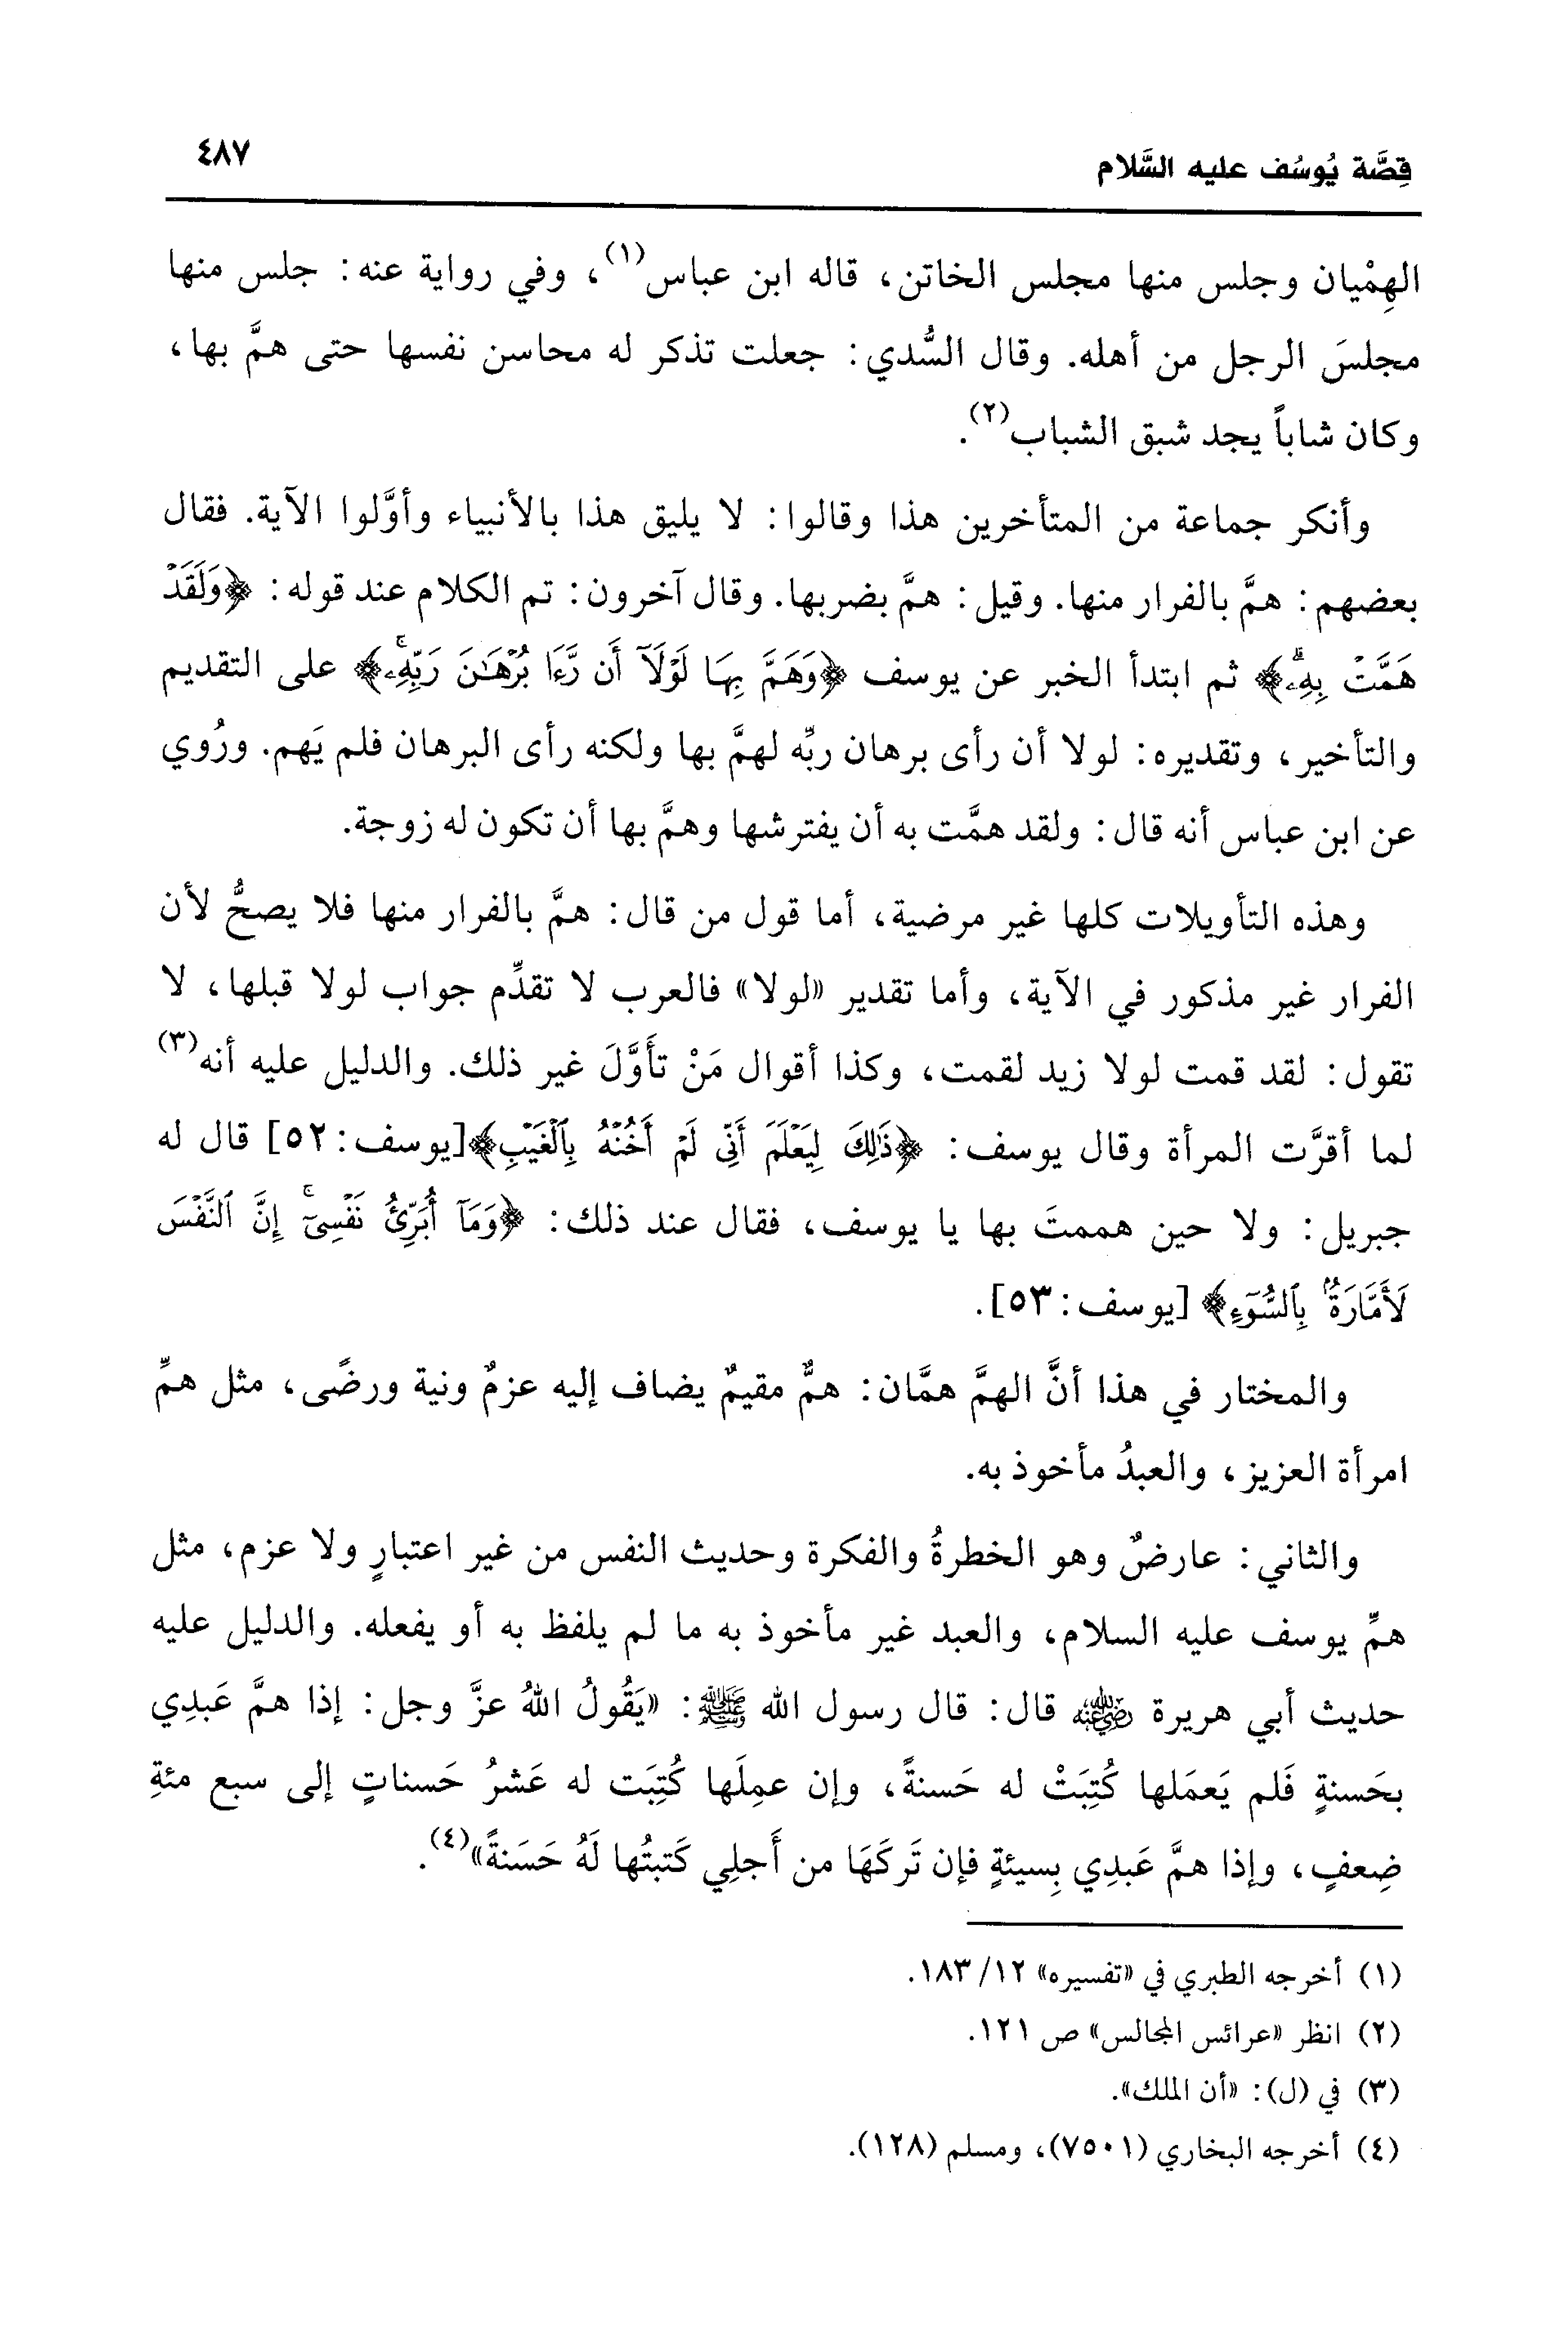 قِصَّة يُوسُف عليه السَّلام ٤٨٧
الهِمْيان وجلس منها مجلس الخاتن، قاله ابن عباس(١)، وفي رواية عنه: جلس منها
مجلسَ الرجل من أهله. وقال السُّدي: جعلت تذكر له محاسن نفسها حتى همَّ بها،
وكان شاباً يجد شبق الشباب(٢).
وأنكر جماعة من المتأخرين هذا وقالوا: لا يليق هذا بالأنبياء وأوَّلوا الآية. فقال
بعضهم: همَّ بالفرار منها. وقيل: همَّ بضربها. وقال آخرون: تم الكلام عند قوله: ﴿وَلَقَدْ
هَمَّتْ بِهِۦۖ﴾ ثم ابتدأ الخبر عن يوسف ﴿وَهَمَّ بِهَا لَوْلَآ أَن رَّءَا بُرْهَـٰنَ رَبِّهِۦۚ﴾ على التقديم
والتأخير، وتقديره: لولا أن رأى برهان ربِّه لهمَّ بها ولكنه رأى البرهان فلم يَهم. ورُوي
عن ابن عباس أنه قال: ولقد همَّت به أن يفترشها وهمَّ بها أن تكون له زوجة.
وهذه التأويلات كلها غير مرضية، أما قول من قال: همَّ بالفرار منها فلا يصحُّ لأن
الفرار غير مذكور في الآية، وأما تقدير «لولا» فالعرب لا تقدِّم جواب لولا قبلها، لا
تقول: لقد قمت لولا زيد لقمت، وكذا أقوال مَنْ تأَوَّلَ غير ذلك. والدليل عليه أنه(٣)
لما أقرَّت المرأة وقال يوسف: ﴿ذَٰلِكَ لِيَعْلَمَ أَنِّي لَمْ أَخُنْهُ بِٱلْغَيْبِ﴾[يوسف: ٥٢] قال له
جبريل: ولا حين هممتَ بها يا يوسف، فقال عند ذلك: ﴿وَمَآ أُبَرِّئُ نَفْسِيٓۚ إِنَّ ٱلنَّفْسَ
لَأَمَّارَةٌۢ بِٱلسُّوٓءِ﴾ [يوسف: ٥٣].
والمختار في هذا أنَّ الهمَّ همَّان: همٌّ مقيمٌ يضاف إليه عزمٌ ونية ورضًى، مثل همِّ
امرأة العزيز، والعبدُ مأخوذ به.
والثاني: عارضٌ وهو الخطرةُ والفكرة وحديث النفس من غير اعتبارٍ ولا عزم، مثل
همِّ يوسف عليه السلام، والعبد غير مأخوذ به ما لم يلفظ به أو يفعله. والدليل عليه
حديث أبي هريرة رضي الله عنه قال: قال رسول الله ﷺ: «يَقُولُ اللهُ عزَّ وجل: إذا همَّ عَبدِي
بحَسنةٍ فَلم يَعمَلها كُتِبَتْ له حَسنةً، وإن عمِلَها كُتِبَت له عَشرُ حَسناتٍ إلى سبع مئةِ
ضِعفٍ، وإذا همَّ عَبدِي بِسيئةٍ فإن تَركَهَا من أَجلِي كَتبتُها لَهُ حَسَنةً»(٤).
(١) أخرجه الطبري في «تفسيره» ١٢/ ١٨٣.
(٢) انظر «عرائس المجالس» ص ١٢١.
(٣) في (ل): «أن الملك».
(٤) أخرجه البخاري (٧٥٠١)، ومسلم (١٢٨).